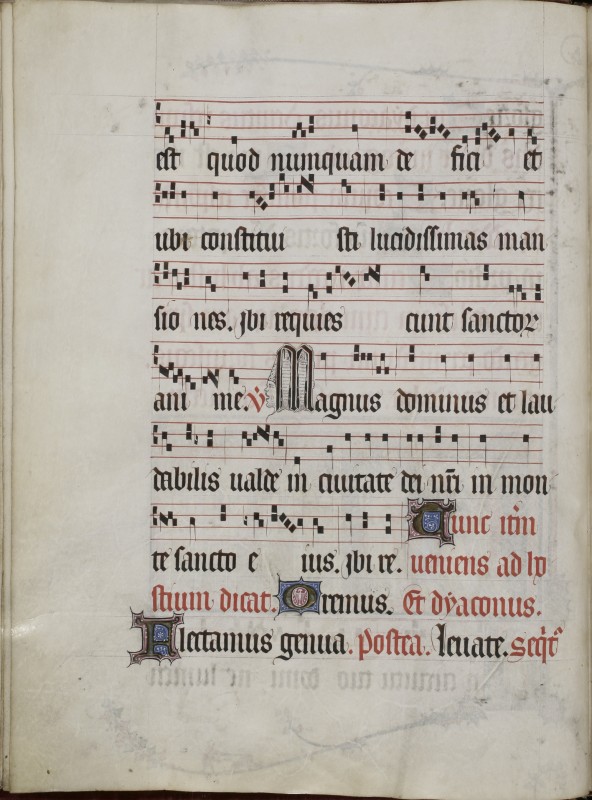 est quod numquam de fici et
ubi constitui sti lucidissimas man
sio nes. jbi requies cunt sanctoꝝ
ani me. v̇ Magnus dominus et lau
dabilis ualde in ciuitate dei nr̄i in mon
te sancto e ius. jbi re. Tunc itm̄ 
ueniens ad ho
stium dicat. Oremus. Et dyaconus.
Flectamus genua. postea. leuate.